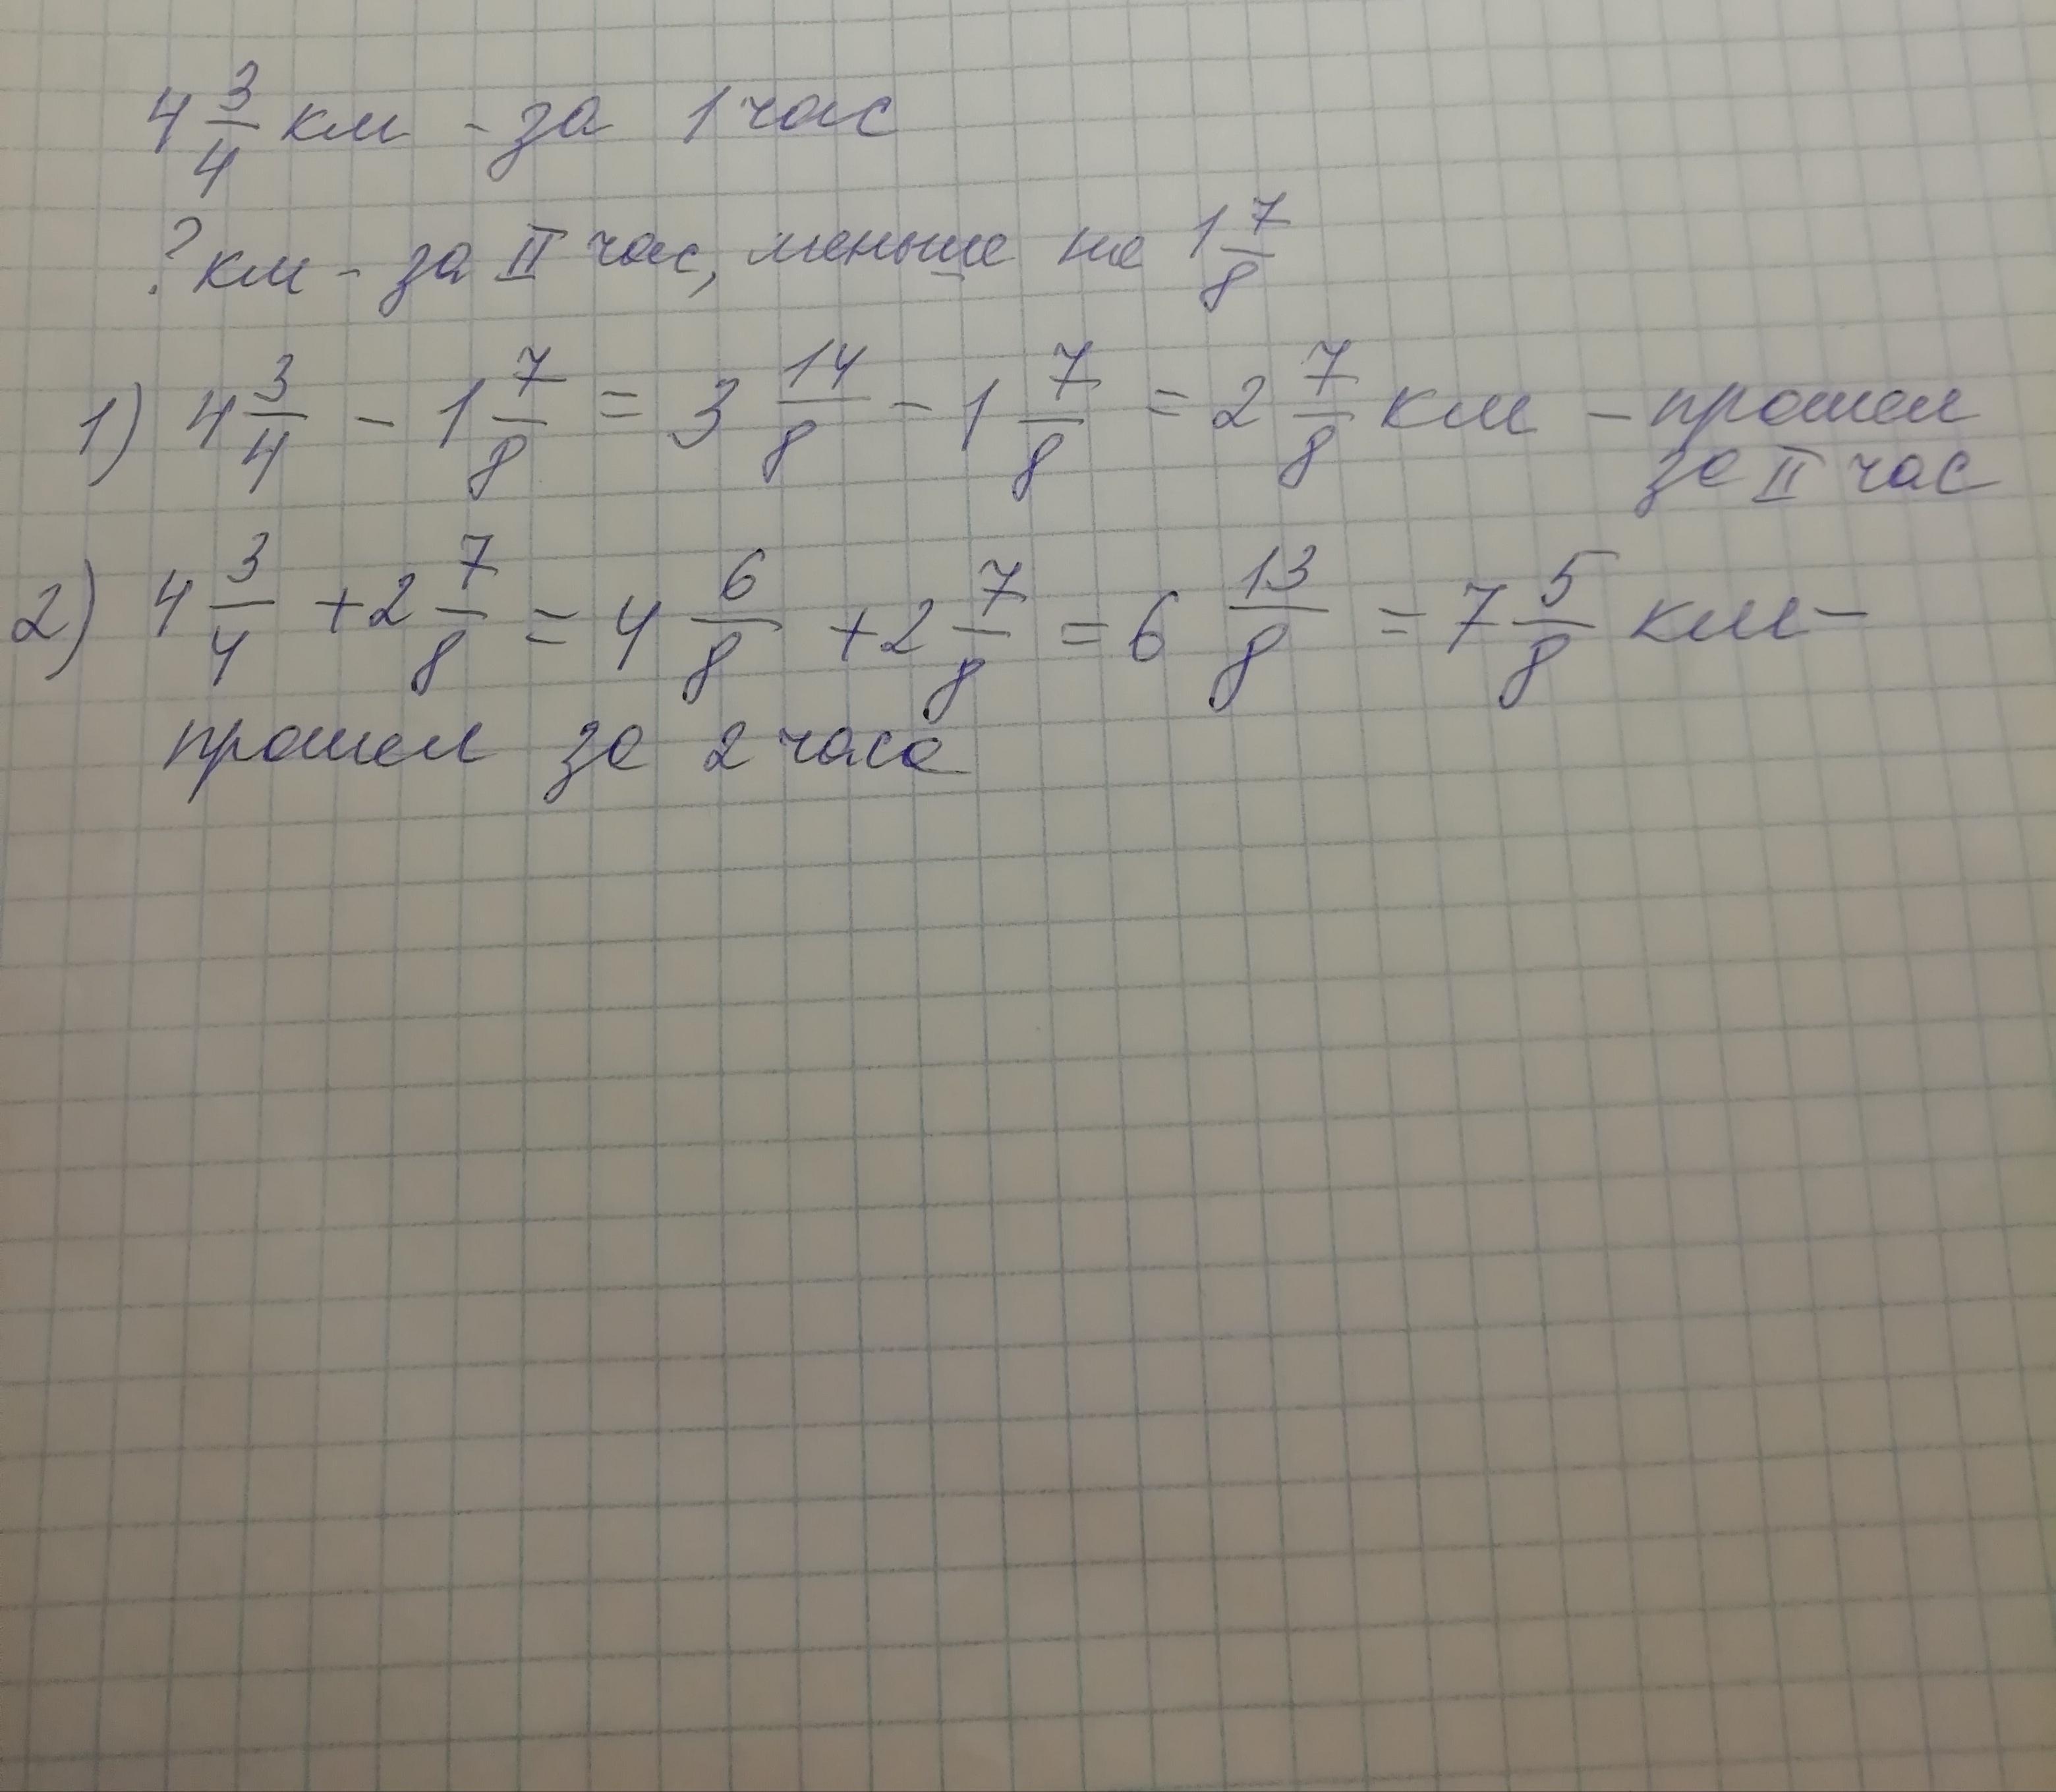 4 3/4 км - за 1 час
? км - за II час, меньше на 1 7/8
1) 4 3/4 - 1 7/8 = 3 14/8 - 1 7/8 = 2 7/8 км - прошел
за II час
2) 4 3/4 + 2 7/8 = 4 6/8 + 2 7/8 = 6 13/8 = 7 5/8 км -
прошел за 2 часа